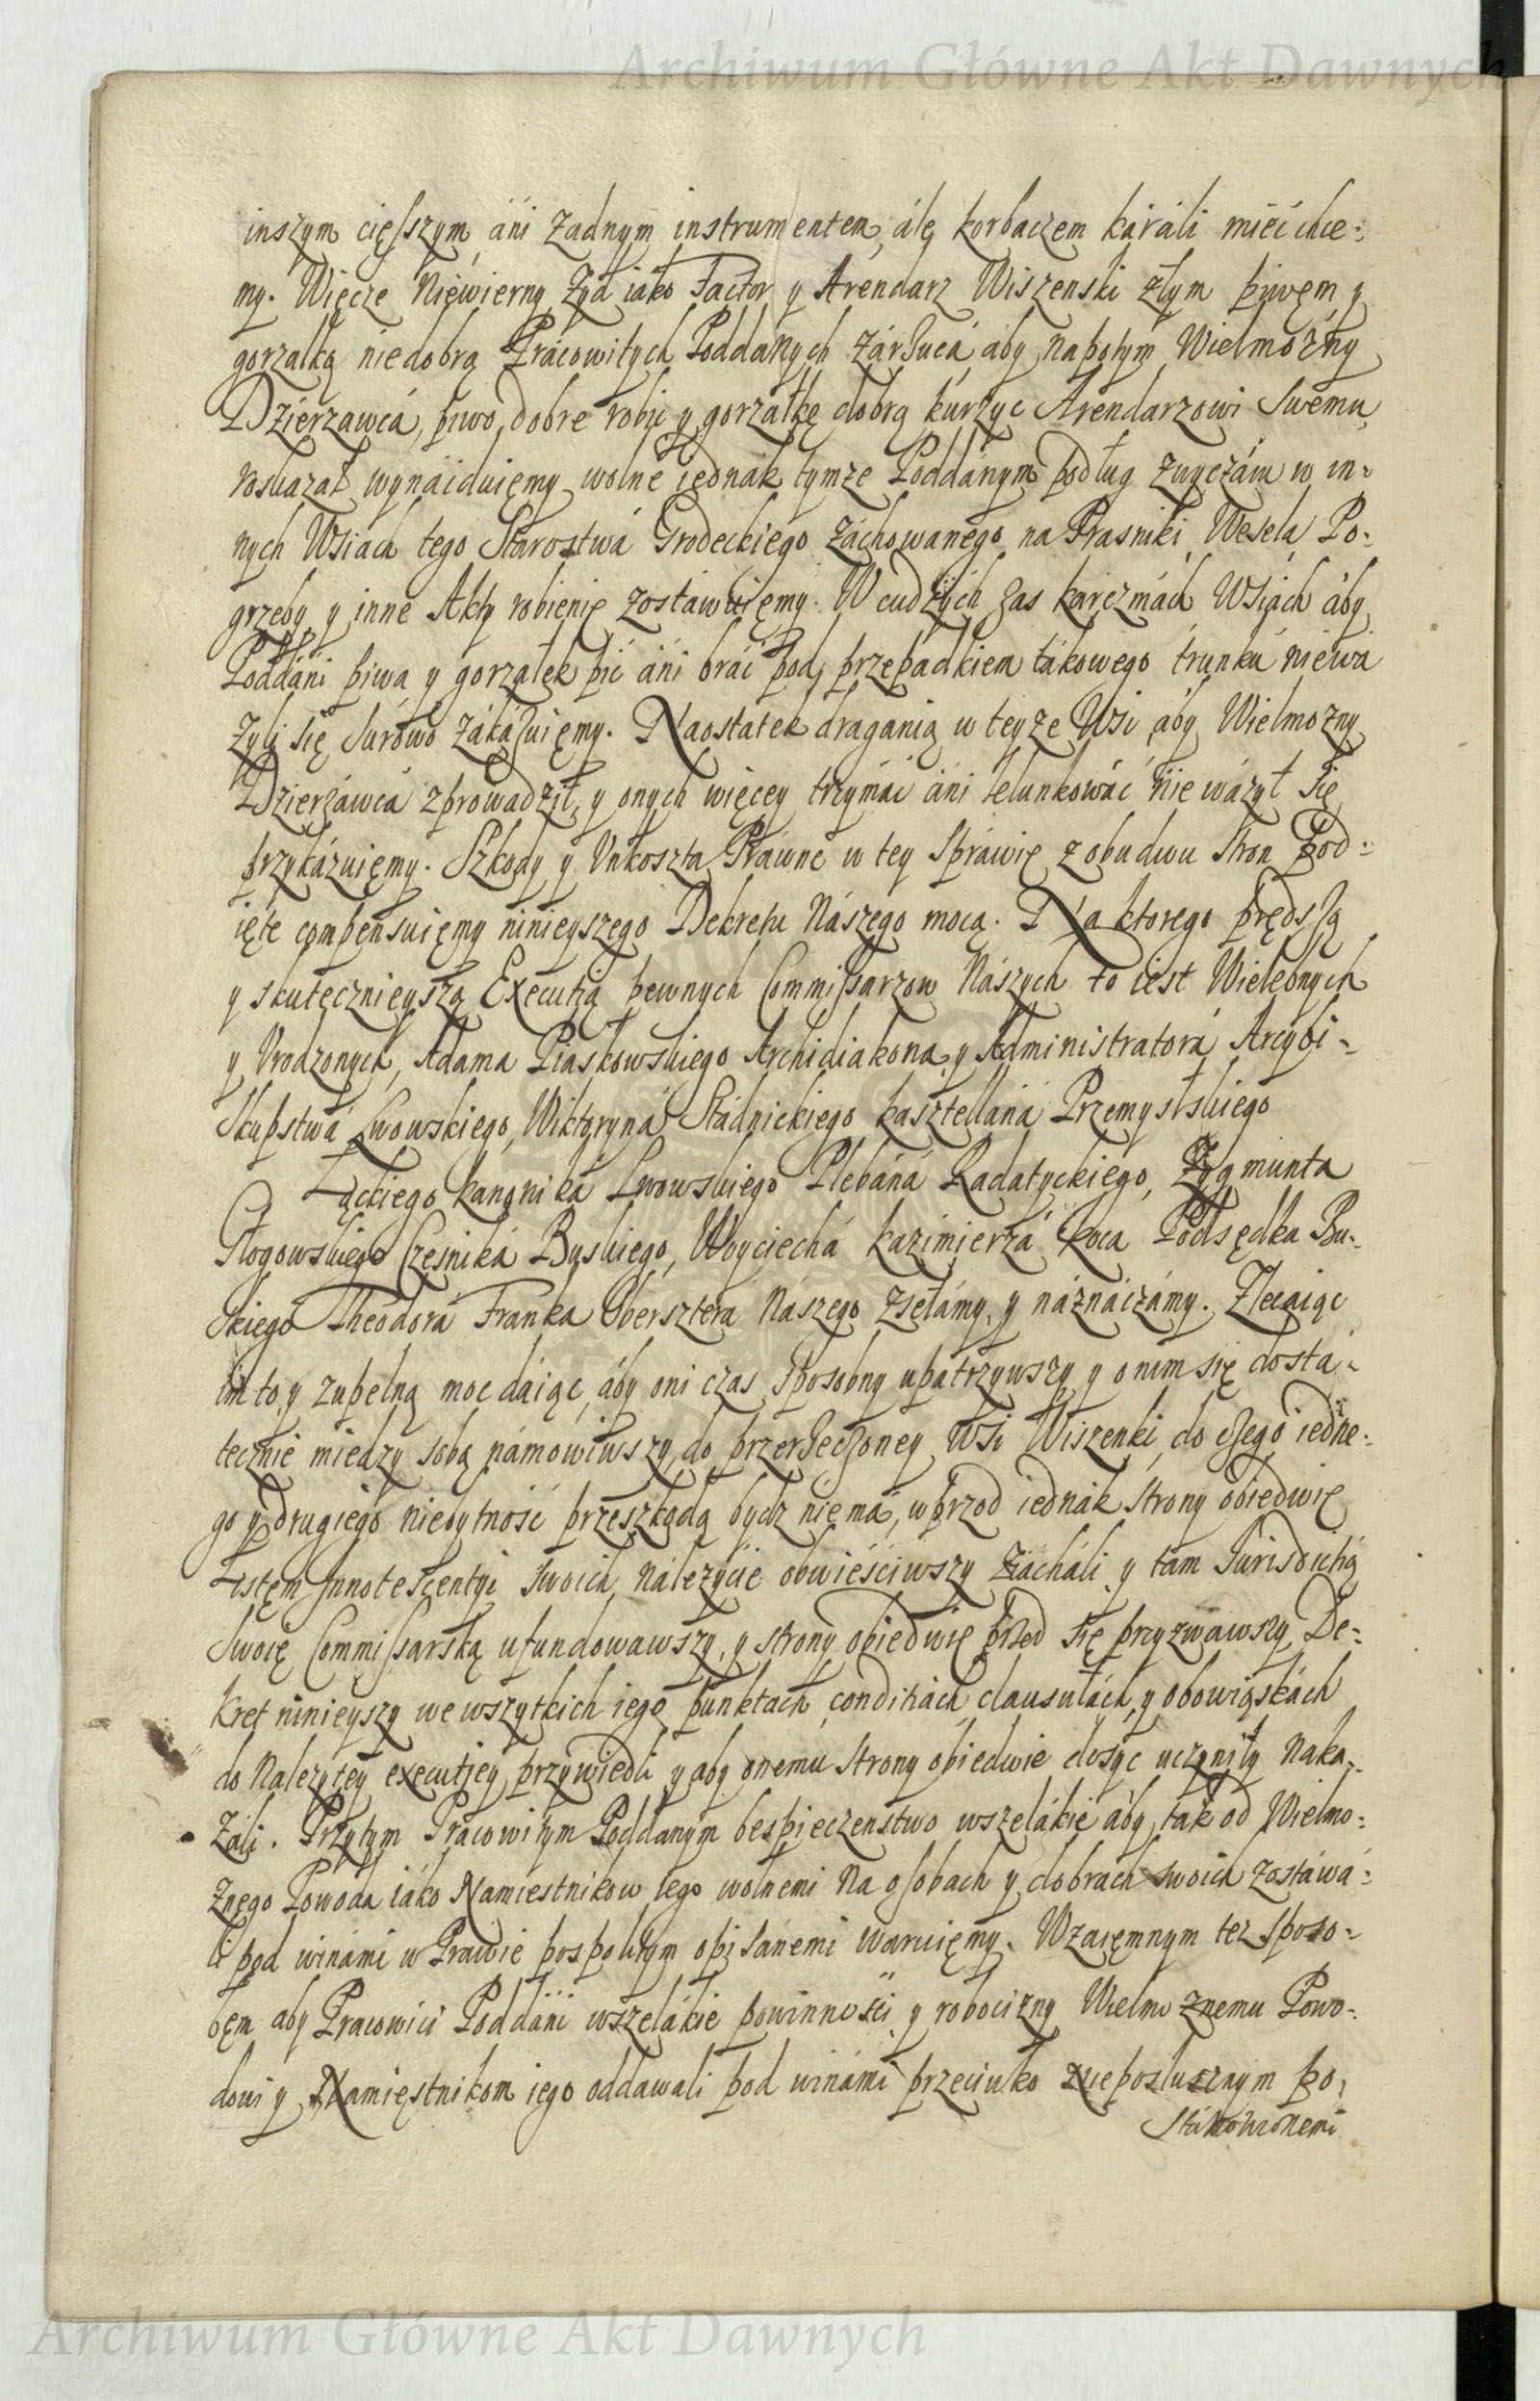 Archiwum Główne Akt Dawnych
inszym cięſszym, áni żadnym instrumentem, ále korbaczem káráli mieć chce-
my. Więcze Niewierny Zyd iako Factor y Arendarz Wiszenski złym piwem y
gorzałką niedobrą Prácowitych Poddanych zárzuca, aby napotym Wielmozny
Dzierzawcá, piwo dobre robić y gorzałkę dobrą kurzyc Arendarzowi Swemu
roskazał wynáiduięmy, wolne iędnák tymze Poddánym podług zwyczáiu w in-
nych Wsiach tego Starostwá Grodeckiego záchowanego, na Prasniki, Wesela, Po-
grzeby y inne Akty robienię zostáwuięmy. W cudzych zas karczmách Wsiách áby
Poddáni piwa y gorzałek pić áni bráć pod przepádkiem tákowego trunku niewa
zyli się Surowo zákázuięmy. Naostatek draganią w teyze Wsi, aby Wielmozny
Dzierzáwcá zprowadził, y onych więcey trzymáć áni lelunkowáć nie wázył się
przykázuięmy. Szkody y Unkoszta Práwne w tey Spráwię z obudwu Stron Pod-
ięte compensuięmy ninieyszego Dekretu Nászego mocą. Na ktorego prędszą
y skutecznieyszą Executią pewnych Commiſsarzow Nászych to iest Wielebnych
y Vrodzonych, Adama Piaskowskiego Archidiakona y Administratorá Arcybi-
skupstwá Lwowskiego, Wiktoryná Stádnickiego kasztellaná Przemyslskiego
Łąckiego kanoniká Lwowskiego Plebáná Radatyckiego, Zygmunta
Głogowskiego Częsniká Buskiego, Woyciechá Kazimierzá Koca Podsędka Bu-
skiego Theodorá Franka Obersztera Nászego zsełámy, y náznáczámy. Zlecaiąc
im to, y zupełną moc dáiąc, áby oni czas sposobny upatrzywszy y o nim się dostá-
tecznie miedzy sobą námowiwszy, do przerzeczoney Wsi Wiszenki, do czego iedne-
go y drugiego niebytność przeszkodą bydz nie ma, w przod iednák strony obiedwię
Listęm Innotescentyi swoich nálezycie obwieściwszy ziácháli y tám Jurisdictią
Swoię Commiſsarską ufundowawszy, y strony obiedwię przed się przyzwawszy De-
kret ninieyszy we wszytkich iego punktach, conditiách, clausułách, y obowiąskách
do Nalezytey executiey przywiedli y aby onemu Strony obiedwie dosyc uczyniły Naka-
záli. Przytym Pracowitym Poddanym bespieczenstwo wszelákie áby, tak od Wielmo-
znego Powoda iáko Namiestnikow iego wolnemi Na osobach y dobrach swoich zostáwá-
li pod winámi w Prawie pospolitym opisánemi waruięmy. Wzaięmnym tez sposo-
bęm aby Pracowici Poddáni wszelákie powinności y robocizny Wielmoznemu Powo-
dowi y Namięstnikom iego oddawali pod winámi przeciwko nieposłusznym po-
stánowionemi
Archiwum Główne Akt Dawnych